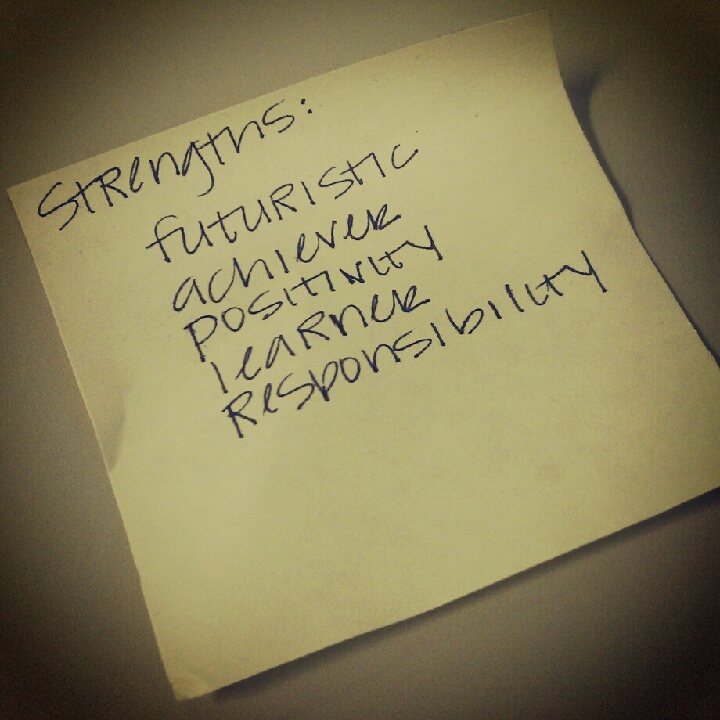 Strengths:
futuristic
achiever
positivity
learner
Responsibility